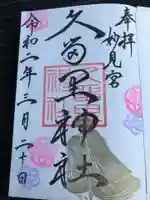 奉拝
妙見宮
久留里神社
令和二年三月二十日